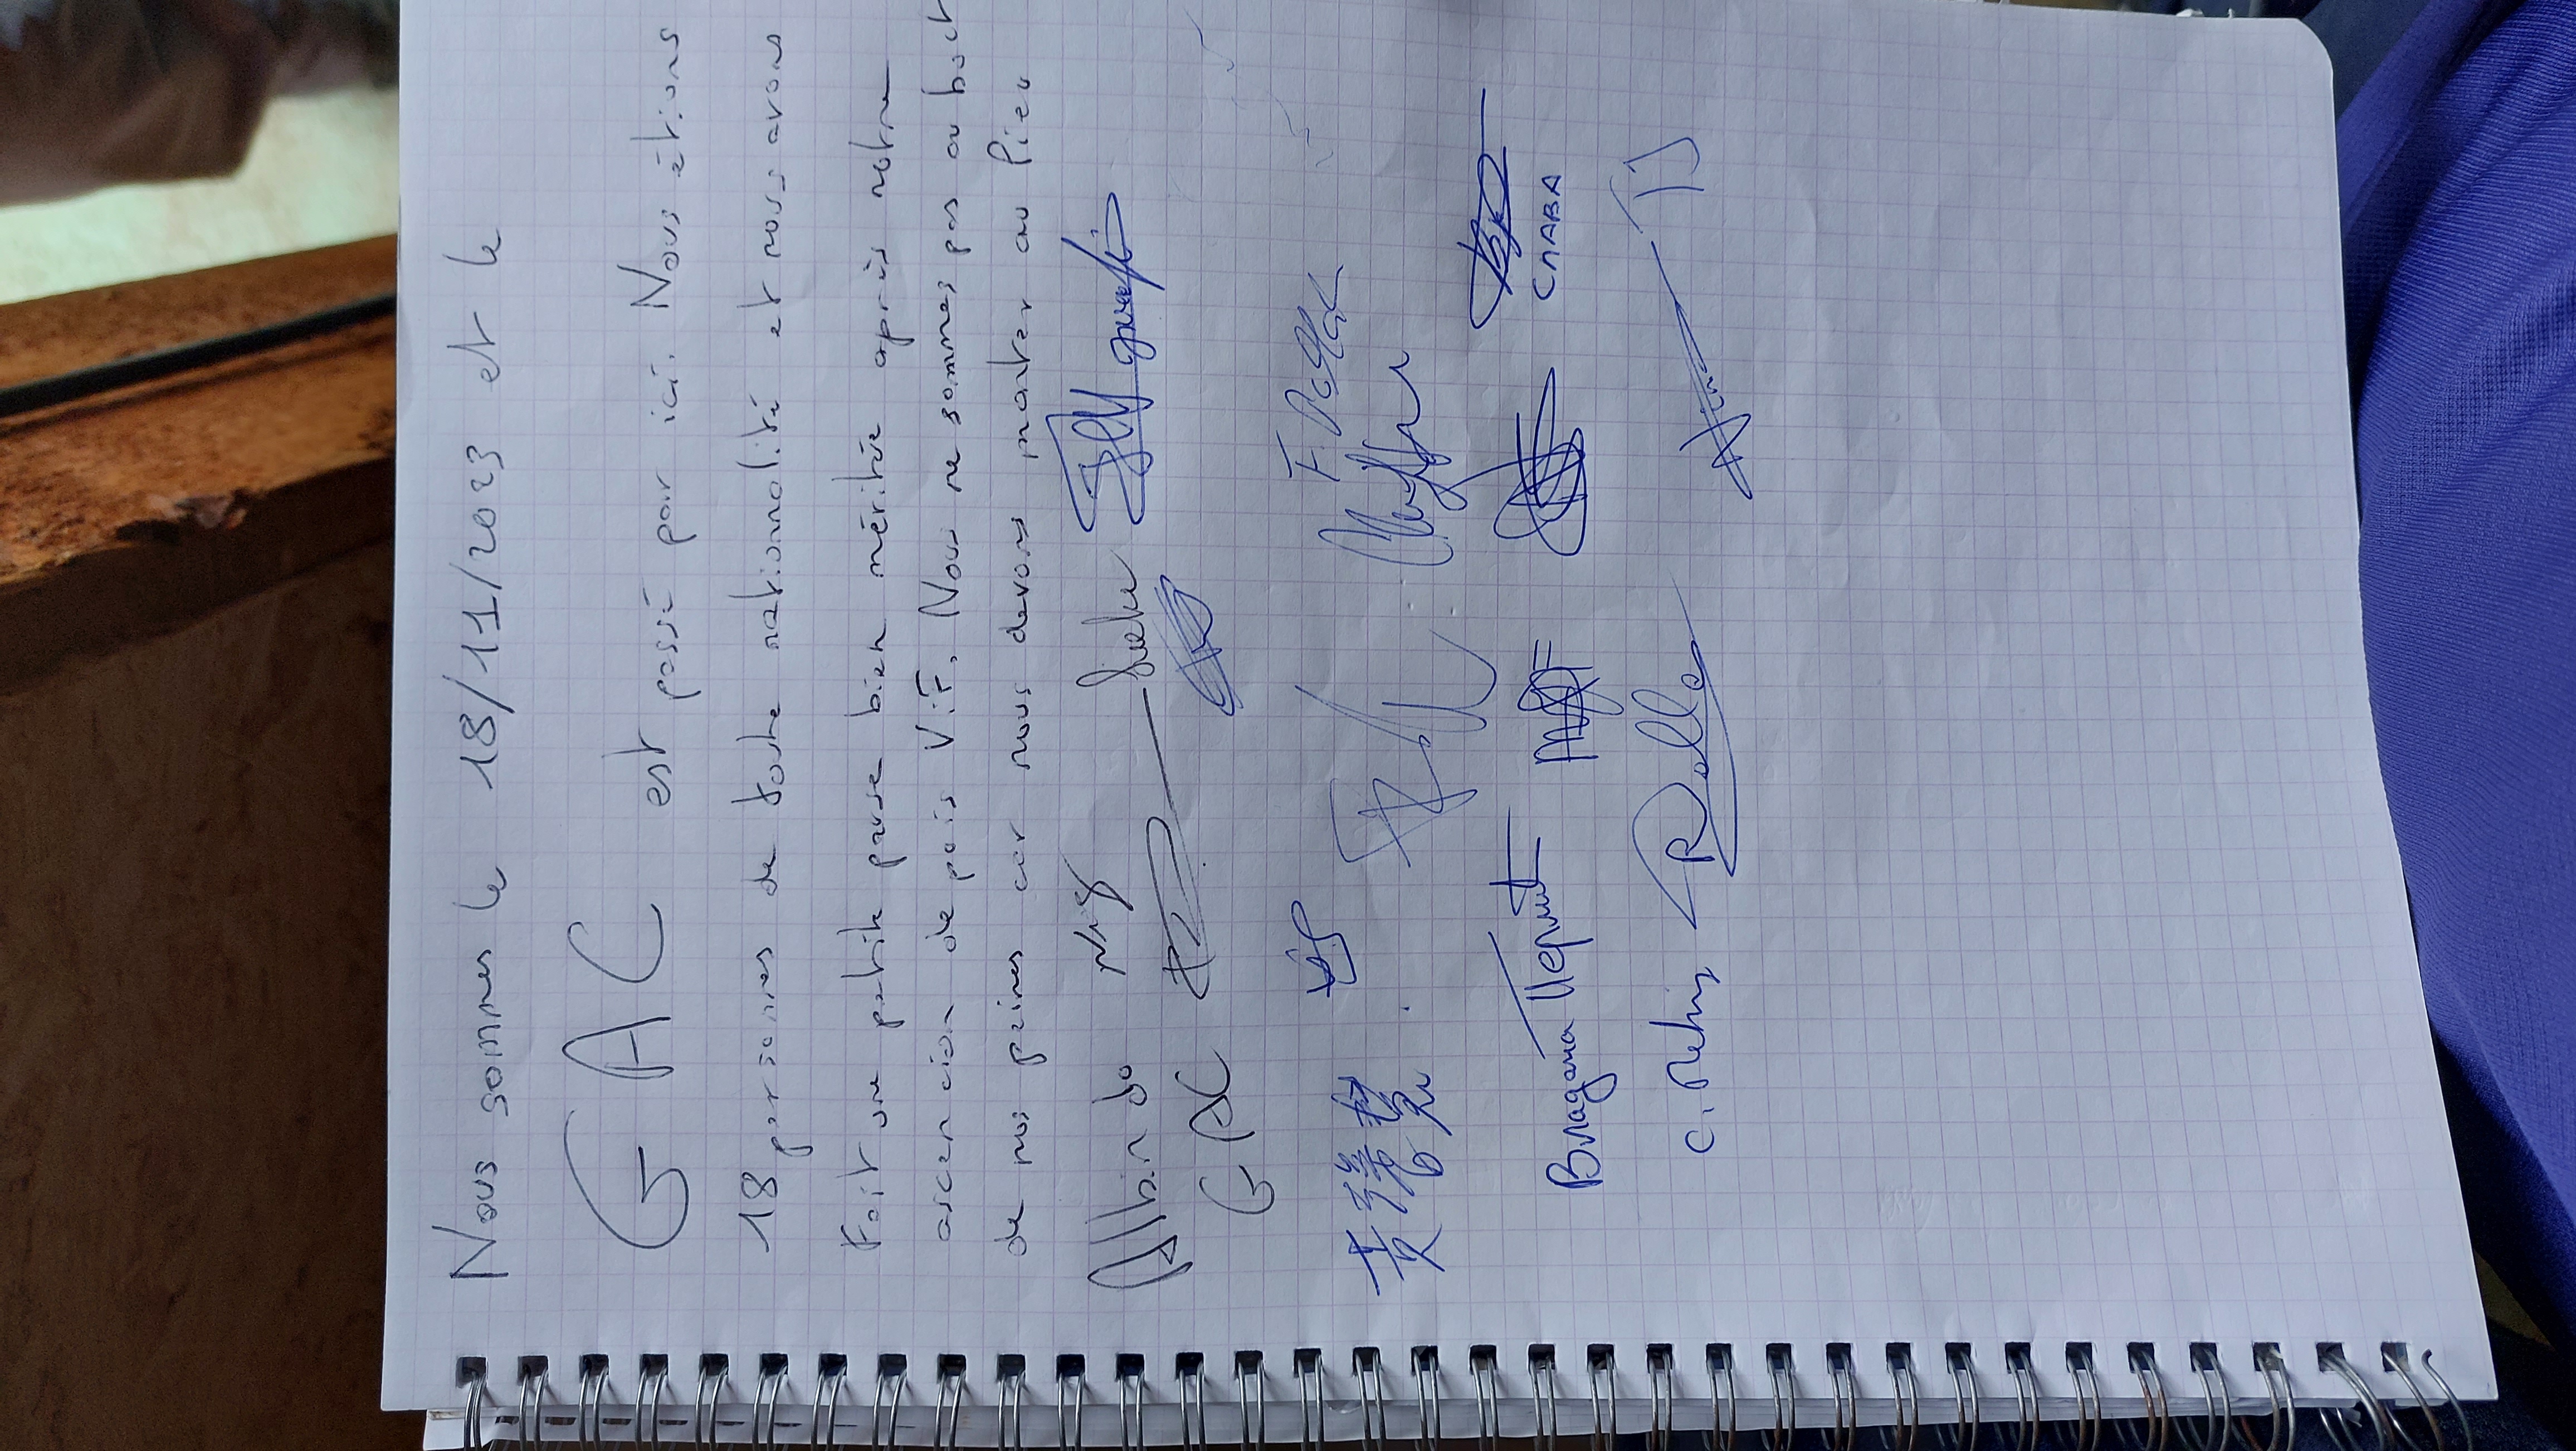 Nous sommes le 18/11/2023 et le
GAC est passé par ici. Nous étions
18 personnes de toute nationnalité et nous avons
Fait une petite pause bien méritée après notre
ascencion depuis Vif. Nous ne sommes pas au bout
de nos peines car nous devons monter au Pieu
Albin do
GAC
Lieke
黃馨慧
Владана
СЛАВА
Nina
TJ